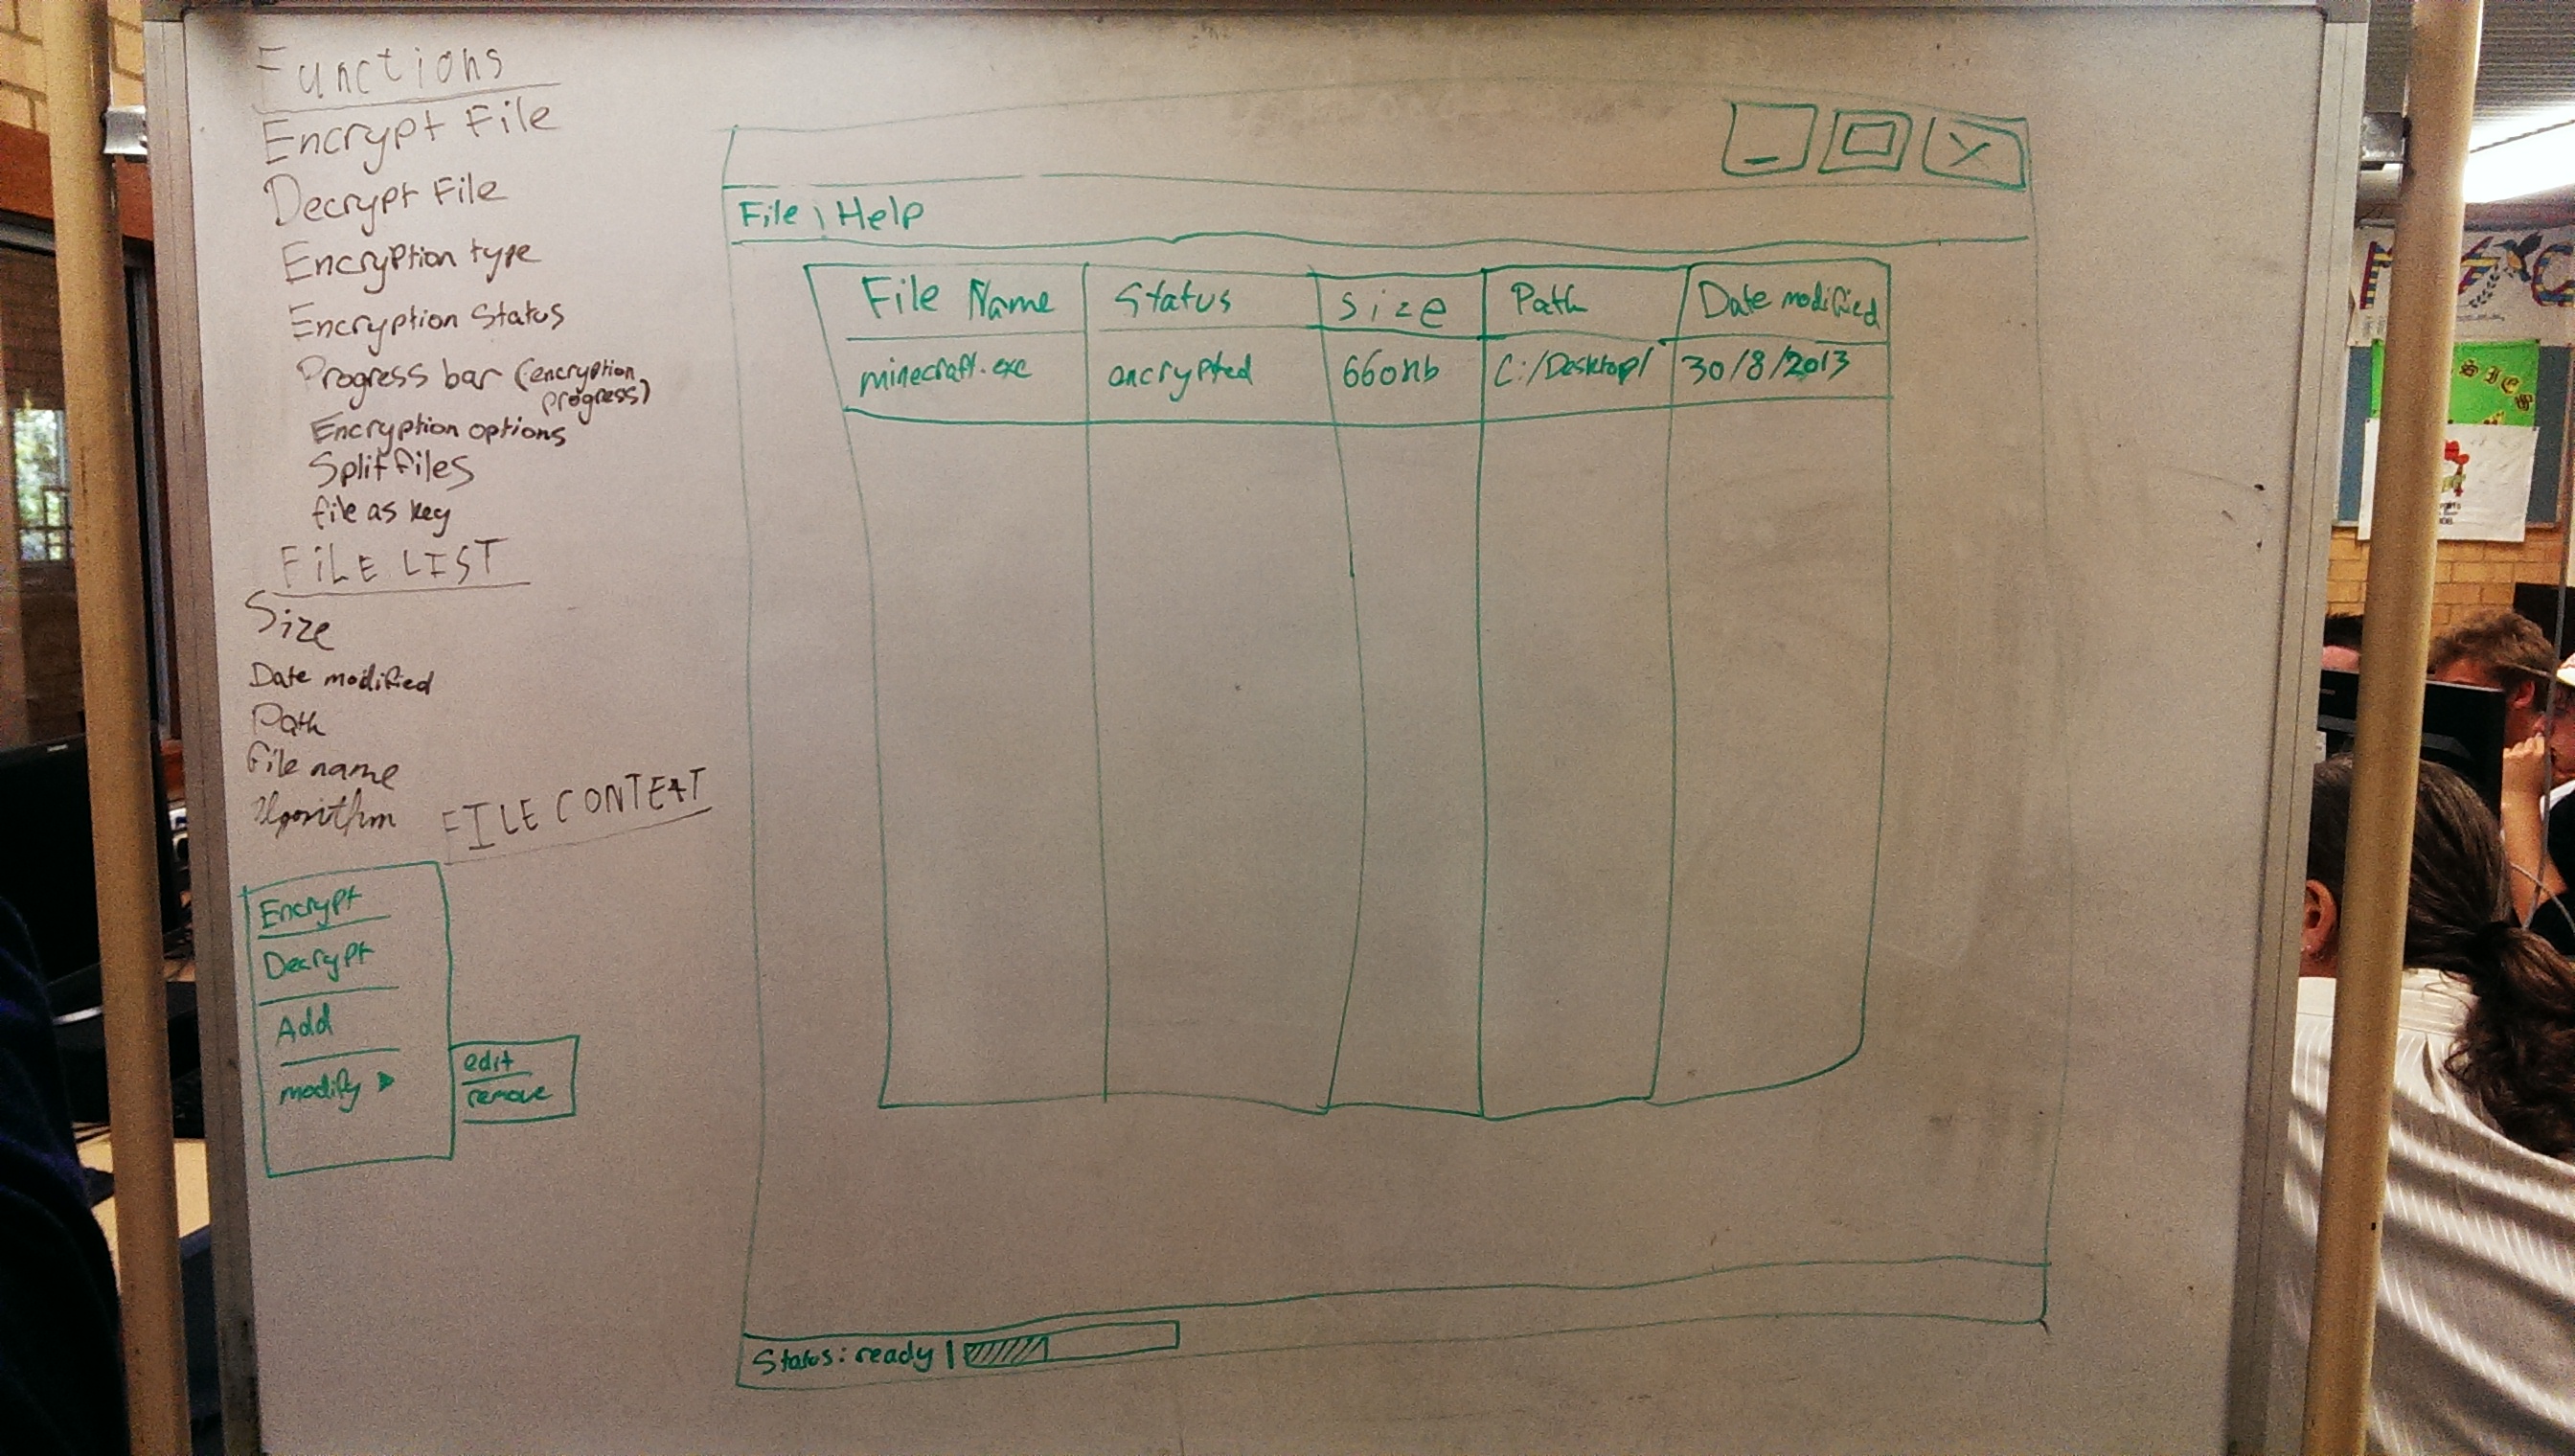 Functions
Encrypt File
Decrypt File
Encryption type
Encryption Status
Progress bar (encryption
progress)
Encryption options
Split files
file as key
FILE LIST
Size
Date modified
Path
File name
Algorithm
FILE CONTEXT
Encrypt
Decrypt
Add
modify ▶
edit
remove
File | Help
File Name Status Size Path Date modified
minecraft.exe encrypted 660kb C:/Desktop/ 30/8/2013
Status: ready |